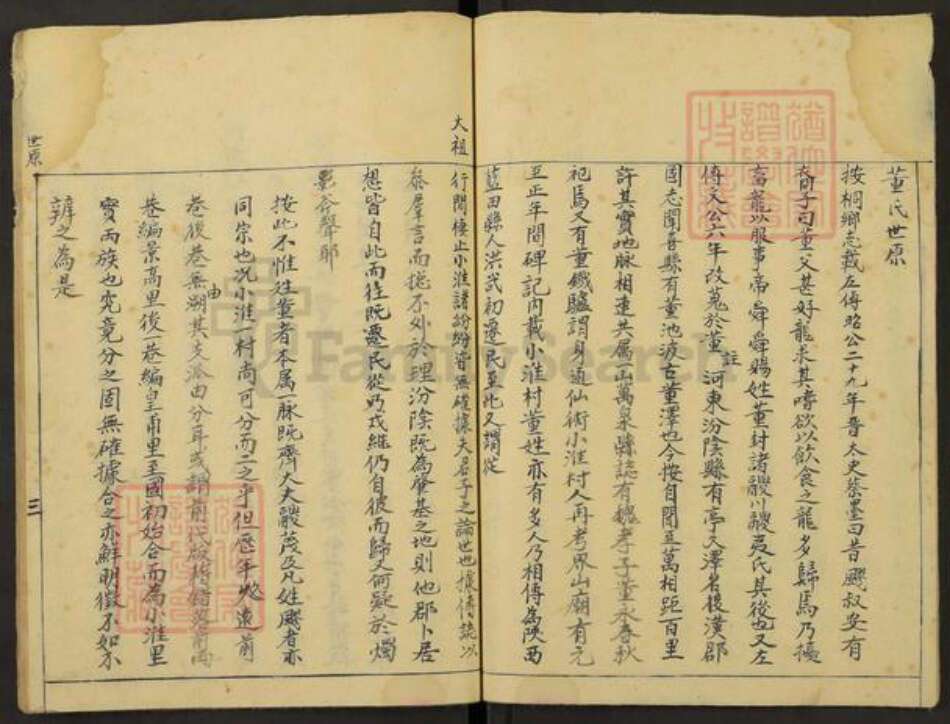 董氏世原
按桐鄉志載左傳昭公二十九年晉太史蔡墨曰昔飂叔安有
裔子曰董父甚好龍求其嗜欲以飲食之龍多歸焉乃擾
畜龍以服事帝舜舜賜姓董封諸鬷川鬷夷氏其後也又左
傳文公六年改蒐於董註河東汾陰縣有亭又澤名後漢郡
國志聞喜縣有董池陂古董澤也今按自聞至萬相距百里
許其實地脉相連共属 萬泉縣誌有魏孝子董永春秋
祀焉又有董鐵驢謂身通仙術小淮村人再考界山廟有元
至正年間碑記内載小淮村董姓亦有多人乃相傳為陝西
藍田縣人洪武初遷民至此又謂從
大祖
行間棲止小淮諸紛紛皆無確據夫君子之論世也據傳說以
叅羣言而搃不外於理汾陰既為肇基之地則他郡卜居
想皆自此而徃既遷民從乃茂継仍自彼而歸又何疑於燭
影斧聲耶
按此不惟姓董者本属一脉既齊大夫鬷蔑及凡姓飂者亦
同宗也况小淮一村尚可分而二之乎但歷年久遠前
巷後巷無由溯其支派由分耳或謂前代版籍錯落前面
巷編景高里後一巷編皇甫里至國初始合而為小淮里
實兩族也究竟分之固無確據合之亦鮮明徵不如不
辨之為是
世原
三
FamilySearch